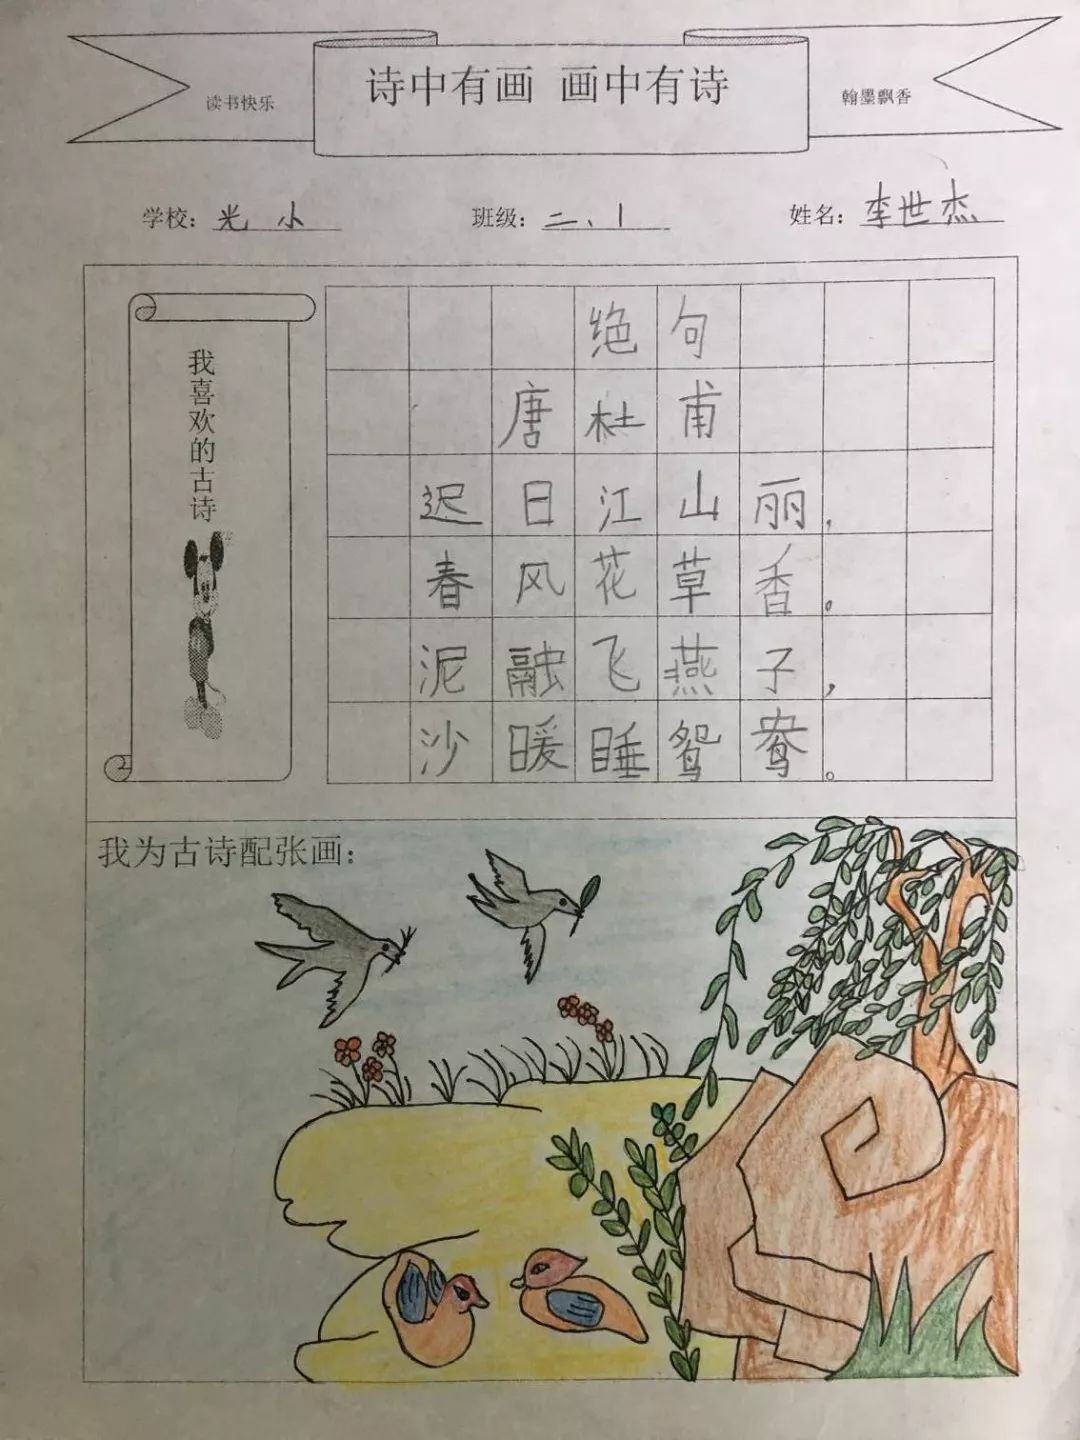 诗中有画 画中有诗
读书快乐
翰墨飘香
学校：光小 班级：二、1 姓名：李世杰
我喜欢的古诗
绝句
唐杜甫
迟日江山丽，
春风花草香。
泥融飞燕子，
沙暖睡鸳鸯。
我为古诗配张画：